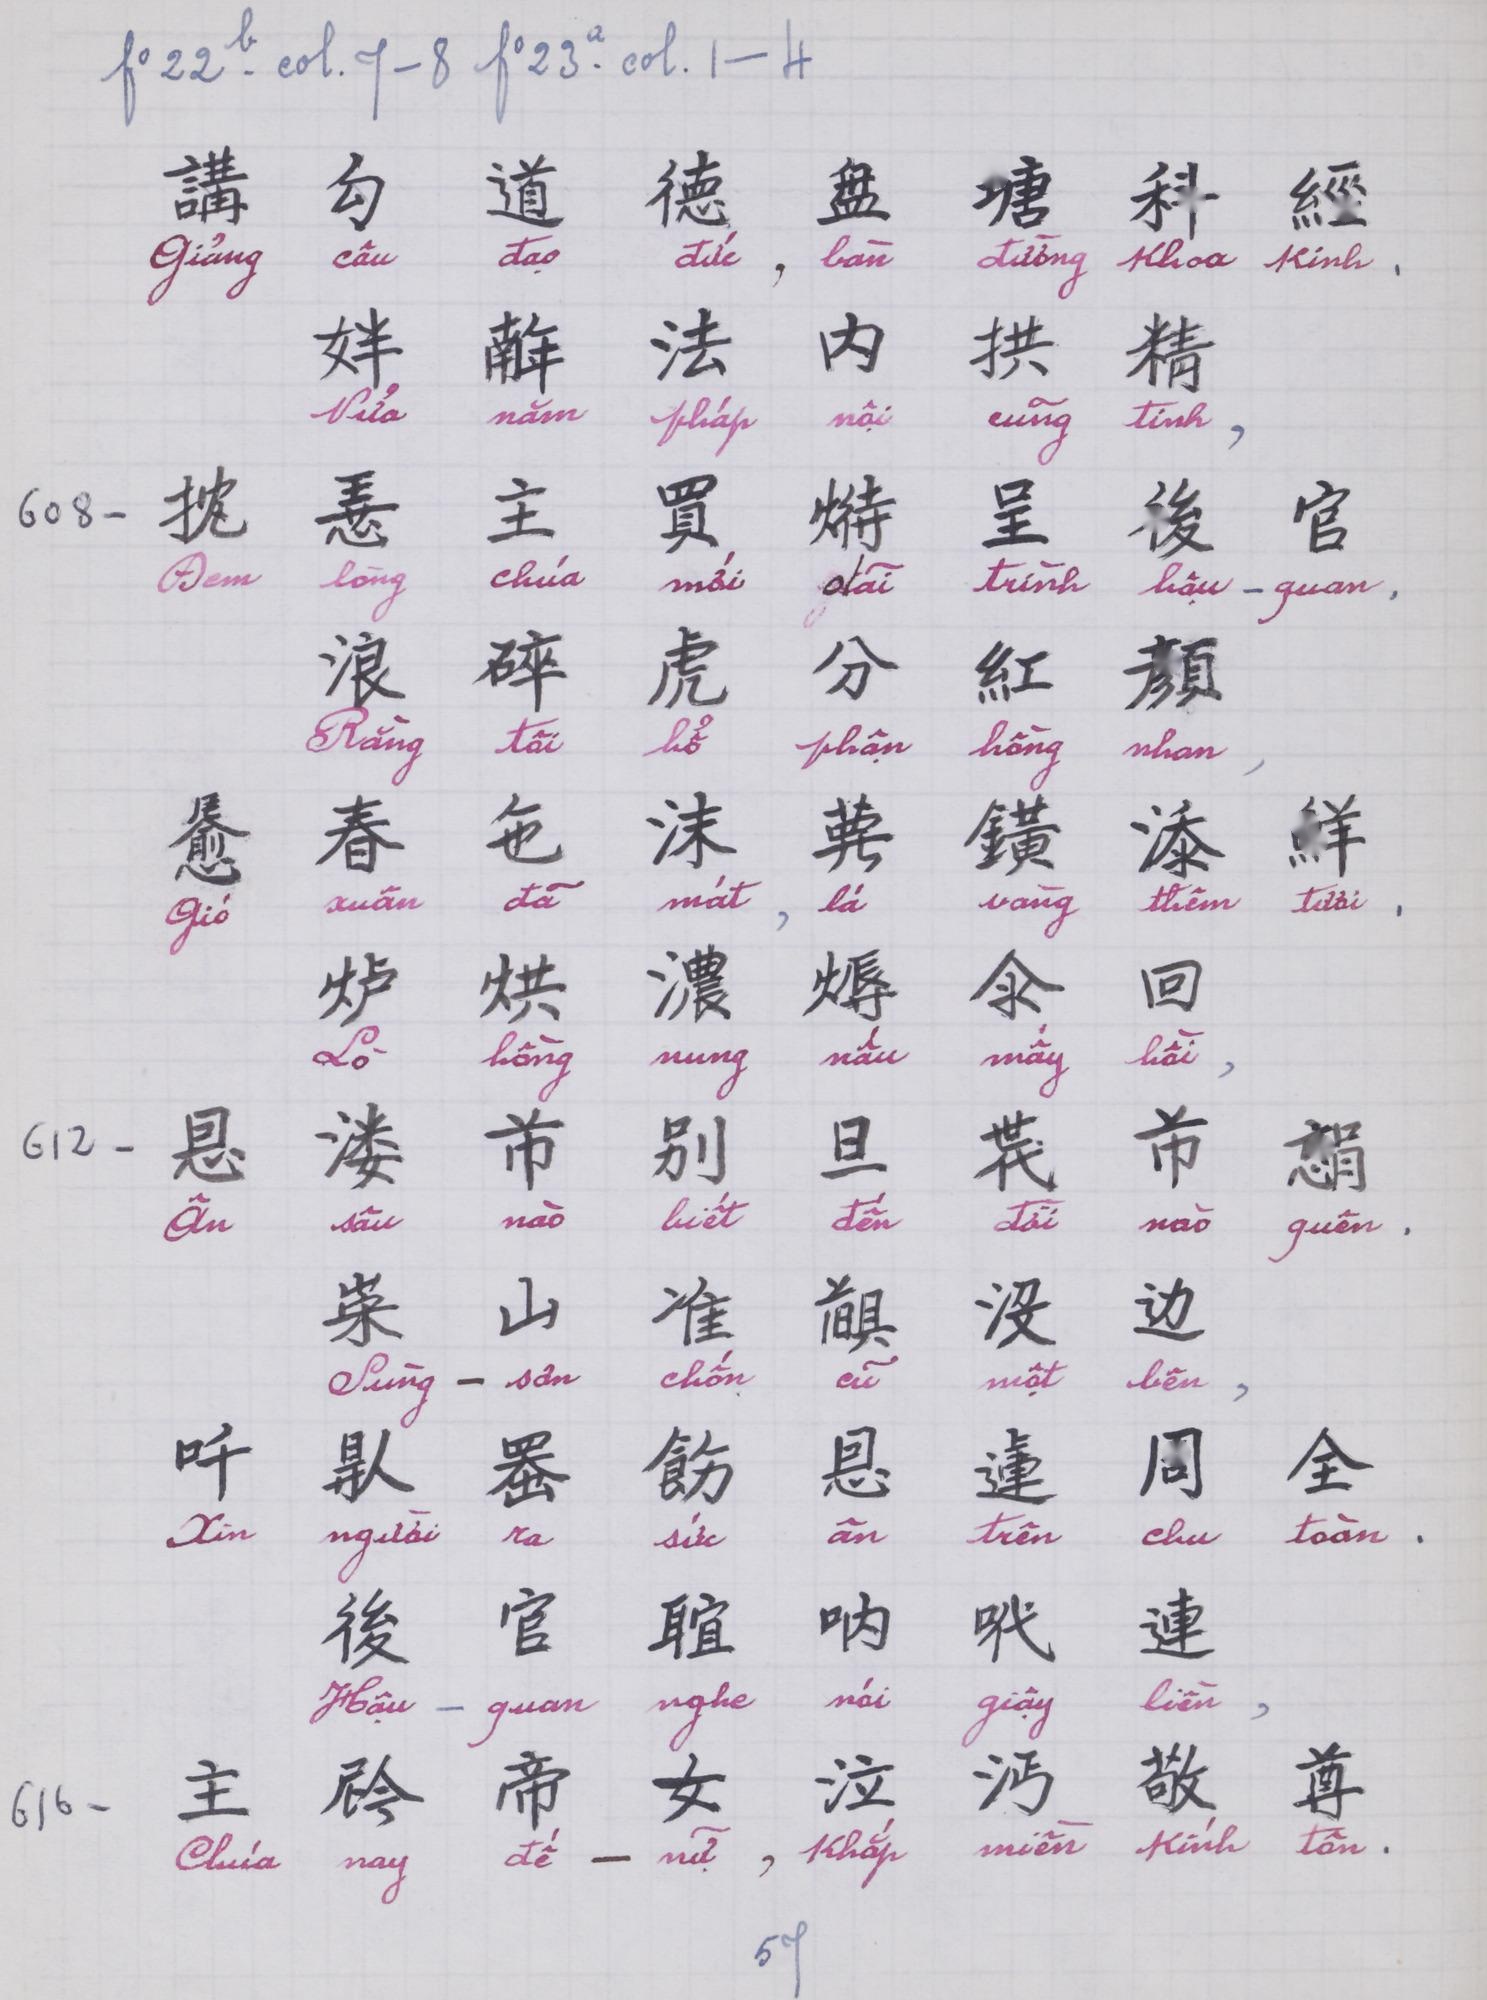 fº 22ᵇ. col. 7-8 fº 23ᵃ. col. 1-4
講 勾 道 德 盘 塘 科 經
Giảng câu đạo đức, bàn đường khoa kinh.
姅 𢆥 法 内 拱 精
Nửa năm pháp nội cũng tinh,
608- 㧡 𢚸 主 買 𤍎 呈 後 官
Đem lòng chúa mới dãi trình hậu-quan.
浪 碎 虎 分 紅 顏
Rằng tôi hổ phận hồng nhan,
春 㐌 沫 鐄 添 鮮
Gió xuân đã mát, lá vàng thêm tươi.
炉 烘 濃 燖 回
Lò hồng nung nấu mấy hồi,
612- 恩 溇 市 别 旦 市
Ân sâu nào biết đến đời nào quên.
崇 山 准 𫇰 沒 边
Sùng-sơn chốn cũ một bên,
吀 𠎬 𠚢 飭 恩 𨕭 周 全
Xin người ra sức ân trên chu toàn.
後 官 𦖑 呐 連
Hậu-quan nghe nói giây liền,
616- 主 帝 女 泣 沔 敬 尊
Chúa nay đế-nữ, khắp miền kính tôn.
57